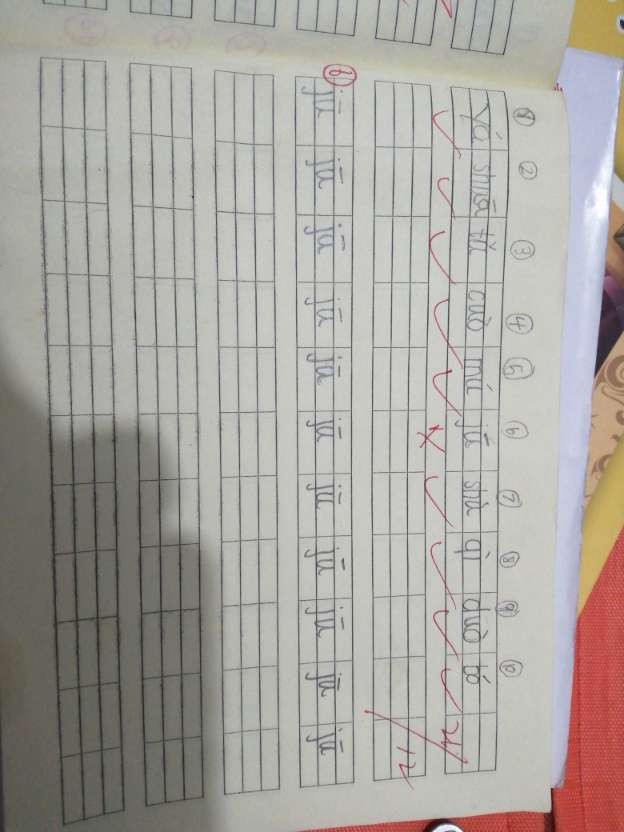 ① ② ③ ④ ⑤ ⑥ ⑦ ⑧ ⑨ ⑩
yá shuā tǔ cuò má shù qì duò bó
⑥
jū jū jū jū jū jū jū jū jū jū jū